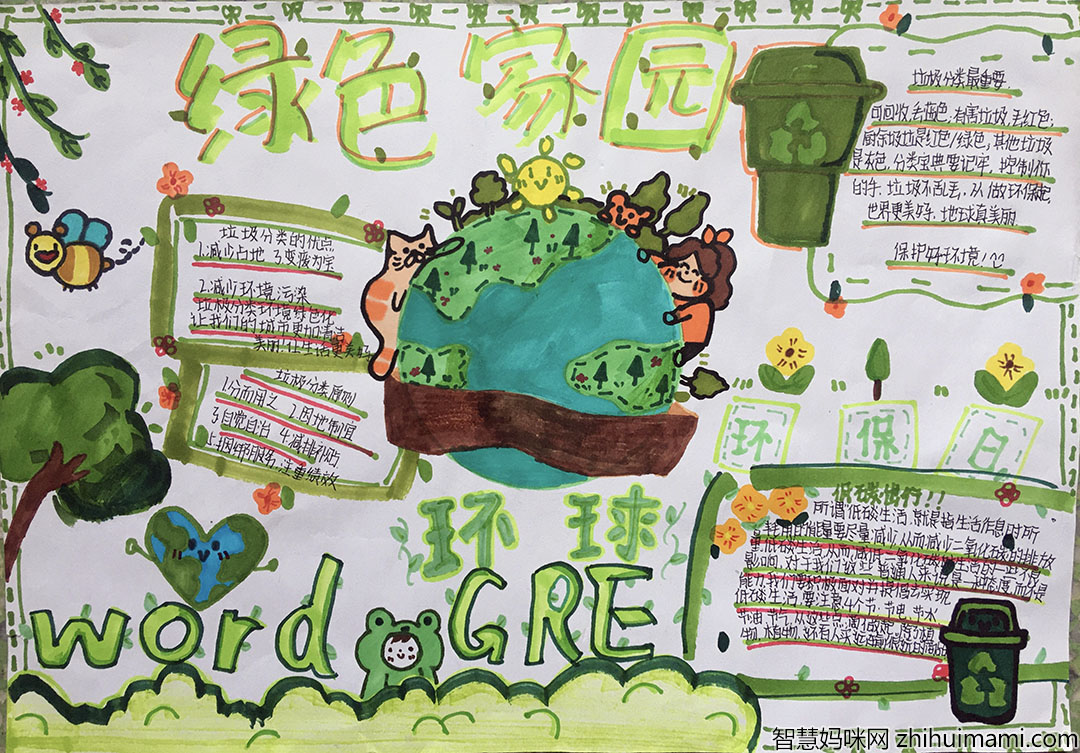 绿色家园
垃圾分类最重要
可回收,丢蓝色;有害垃圾,丢红色;
厨余垃圾是红色/绿色,其他垃圾
是灰色,分类宝典要记牢,控制你
的手,垃圾不乱丢,从做环保起,
世界更美好,地球真美丽
保护好环境!
垃圾分类的优点
1.减少占地 3.变废为宝
2.减少环境污染
垃圾分类环境绿色化
让我们的城市更加清洁
美丽,让生活更美好
垃圾分类原则
1.分而用之 2.因地制宜
3.自觉自治 4.减排补贴
5.捆绑服务,注重绩效
环保日
环球
word GRE
低碳出行!!
所谓低碳生活,就是指生活作息时所
耗用的能量要尽量减少,从而减少二氧化碳的排放
量,低碳生活
影响,对于我们这些普通人来说是一种态度,而不是
能力,我们要积极面对并提倡去实现
低碳生活,要注意4个节:节电,节水
节油,节气,从这些点滴做起
智慧妈咪网 zhihuimami.com